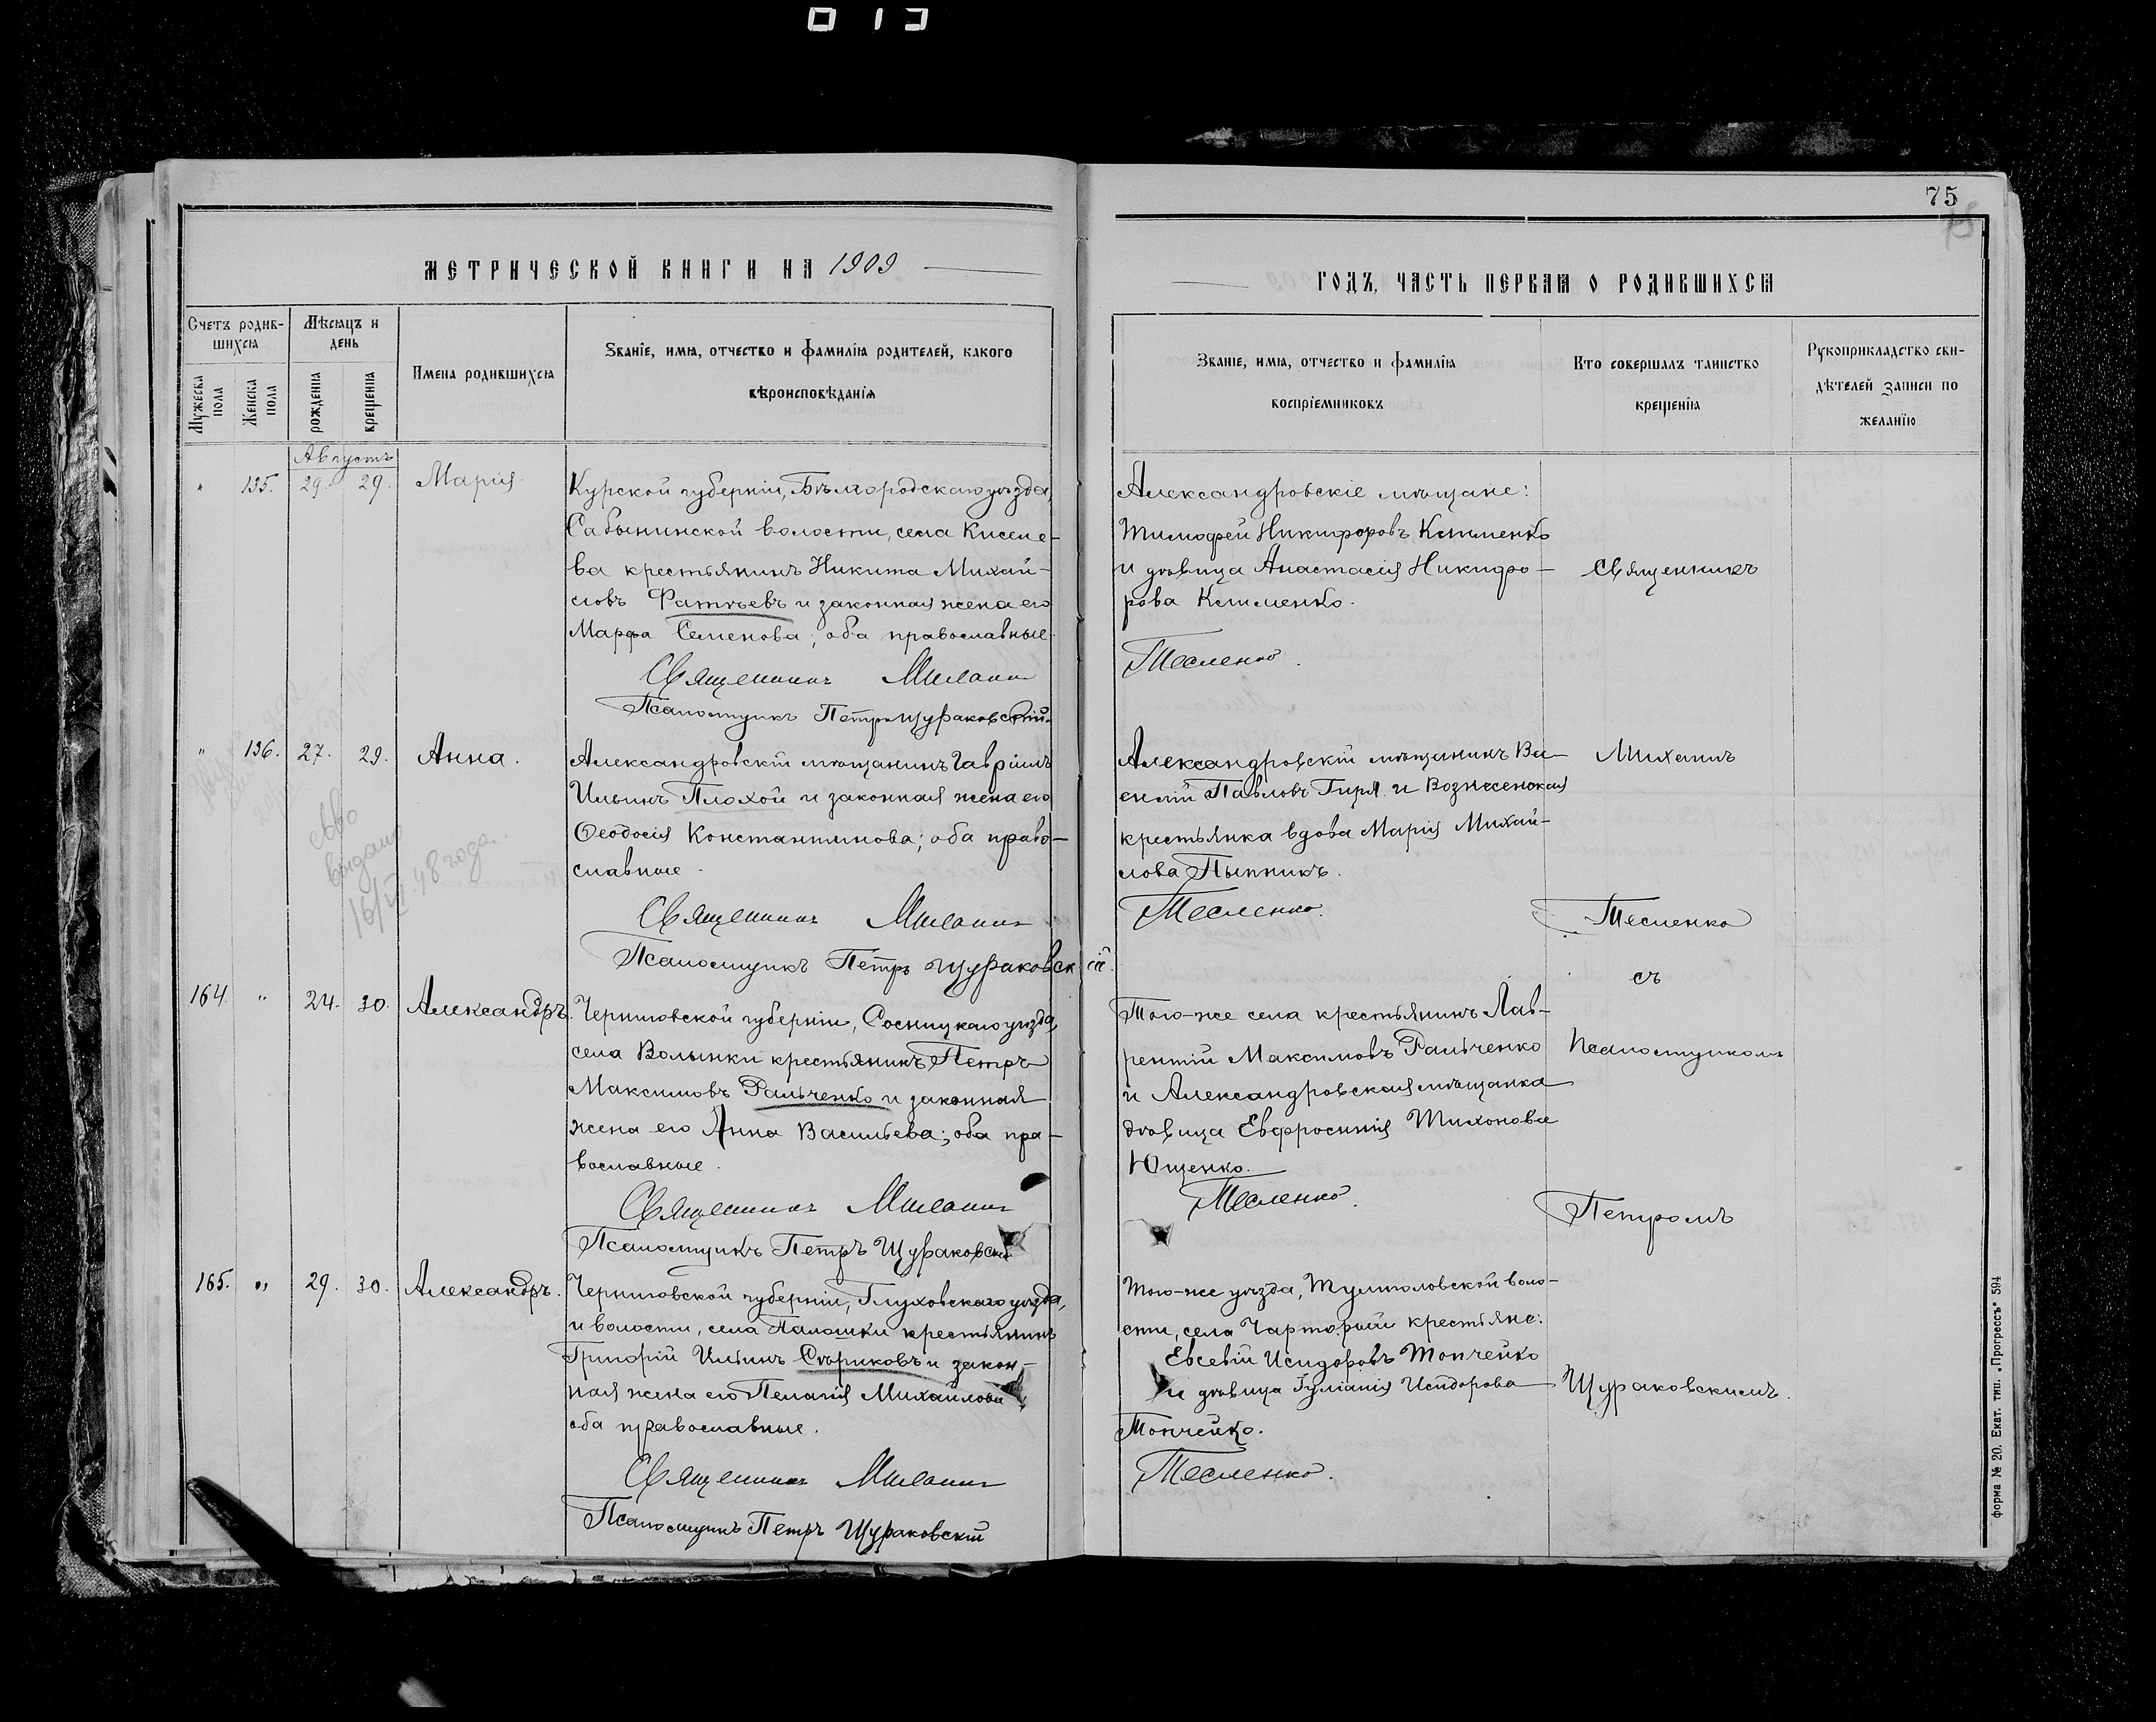 75
МЕТРИЧЕСКОЙ КНИГИ НА 1909
ГОДЪ, ЧАСТЬ ПЕРВАЯ О РОДИВШИХСЯ
Счетъ родив-
шихся
Мужеска
пола
Женска
пола
Мѣсяцъ и
день
рожденія
крещенія
Имена родившихся
Званіе, имя, отчество и фамилія родителей, какого
вѣроисповѣданія
Званіе, имя, отчество и фамилія
воспріемниковъ
Кто совершалъ таинство
крещенія
Рукоприкладство сви-
дѣтелей записи по
желанію
Августъ
" 135. 29. 29. Марія.
Курской губерніи, Бѣлгородскаго уѣзда,
Сабынинской волости, села Киселе-
ва крестьянинъ Никита Михай-
ловъ Фатьевъ и законная жена его
Марфа Семенова; оба православные.
Священникъ
Псаломщикъ Петръ Щураковскій.
Александровскіе мѣщане:
Тимофей Никифоровъ Клименко
и дѣвица Анастасія Никифо-
рова Клименко.
Тесленко.
" 136. 27. 29. Анна.
Александровскій мѣщанинъ Гавріилъ
Ильинъ Плохой и законная жена его
Ѳеодосія Константинова; оба право-
славные.
Священникъ
Псаломщикъ Петръ Щураковскій.
Александровскій мѣщанинъ Ва-
силій Павловъ Гиря и Вознесенская
крестьянка вдова Марія Михай-
лова Пынникъ.
Тесленко.
св-во
выдано
16/VI 48 года.
164. " 24. 30. Александръ.
Черниговской губерніи, Сосницкаго уѣзда,
села Волынки крестьянинъ Петръ
Максимовъ Фальченко и законная
жена его Анна Васильева; оба пра-
вославные.
Священникъ
Псаломщикъ Петръ Щураковскій
Того-же села крестьянинъ Лав-
рентій Максимовъ Фальченко
и Александровская мѣщанка
дѣвица Евфросинія Тихонова
Ющенко.
Тесленко.
165. " 29. 30. Александръ.
Черниговской губерніи, Глуховскаго уѣзда,
и волости, села Палошки крестьянинъ
Григорій Ильинъ Сѣриковъ и закон-
ная жена его Пелагія Михайлова
оба православные.
Священникъ
Псаломщикъ Петръ Щураковскій
Того-же уѣзда, Тулиголовской воло-
сти, села Чарторыи крестьяне:
Евсевій Исидоровъ Топчейко
и дѣвица Іуліанія Исидорова
Топчейко.
Тесленко.
Священникъ
Михаилъ
Тесленко
съ
Псаломщикомъ
Петромъ
Щураковскимъ.
Форма № 20. Екат. тип. „Прогрессъ" 594